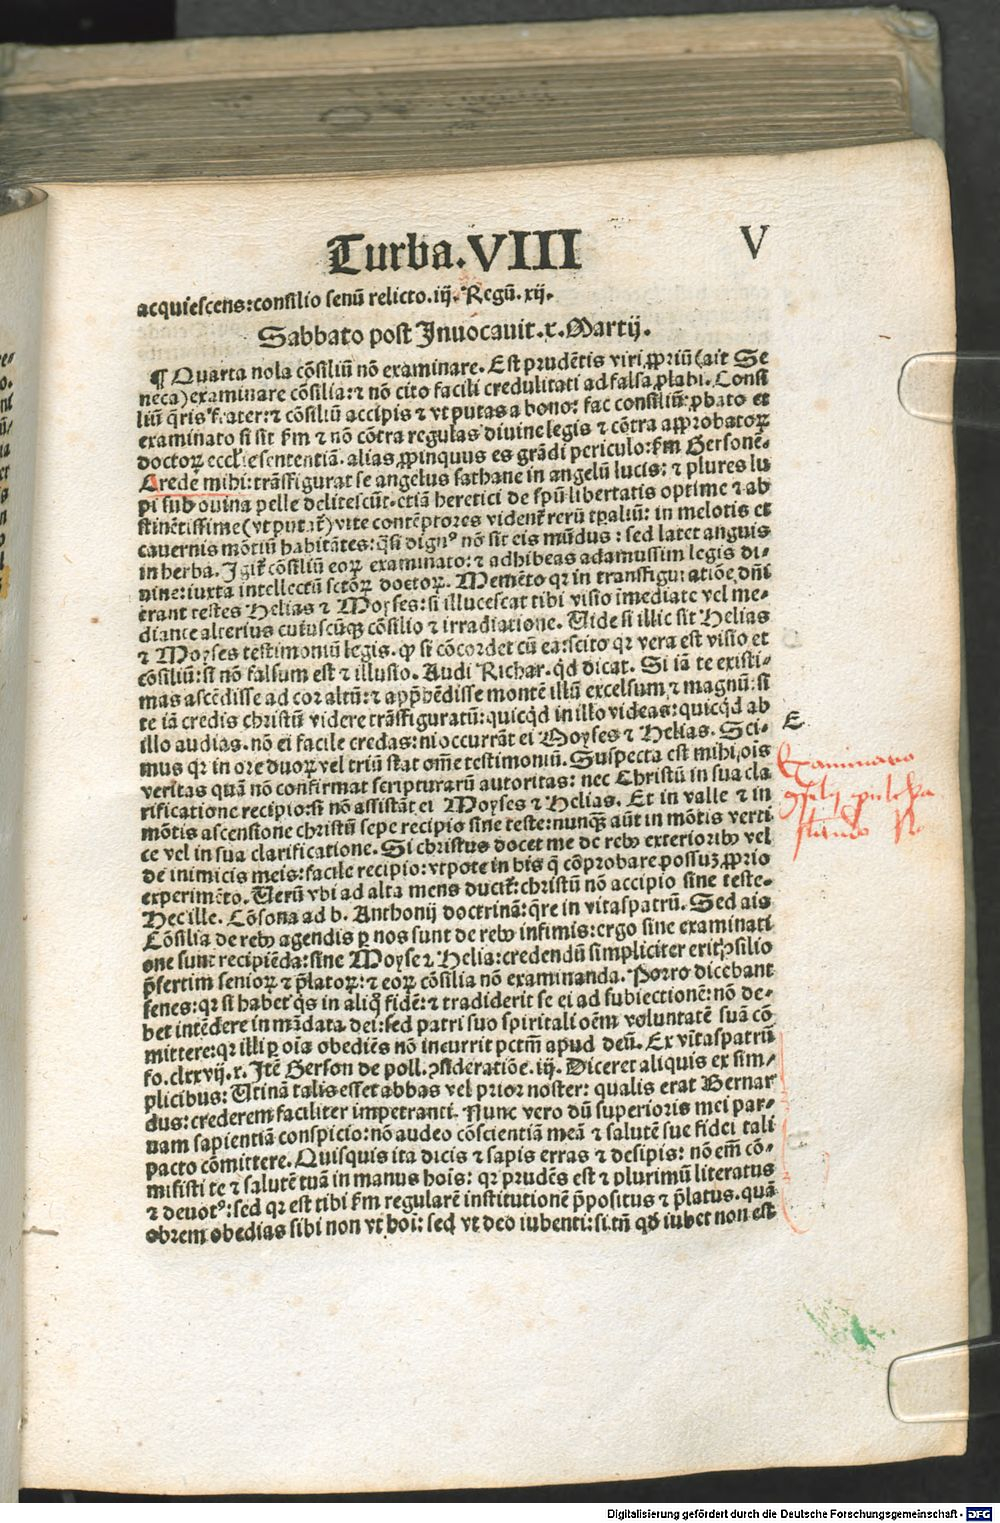 Turba.VIII V
acquiescens:consilio senū relicto.iij. Regū.xij.
Sabbato post Inuocauit.x.Martij.
¶ Quarta nola cōsiliū nō examinare. Est prudētis viri ꝓpriū (ait Se
neca) examinare cōsilia: ⁊ nō cito facili credulitati ad falsa ꝓlabi. Consi
liū q̄ris frater: ⁊ cōsiliū accipis ⁊ vt putas a bono: fac consiliū ꝓbato et
examinato si sit ẜm ⁊ nō cōtra regulas diuine legis ⁊ cōtra approbatoꝝ
doctoꝝ eccl'ie sententiā. alias ꝓpinquus es grādi periculo: ẜm Gersonē.
Crede mihi: trāsfigurat se angelus sathane in angelū lucis: ⁊ plures lu
pi sub ouina pelle delitescūt. etiā heretici de spū libertatis optime ⁊ ab
stinētissime (vt putat̄) vite contēptores vident̄ rerū tpaliū: in melotis et
cauernis mōtiū habitātes: q̄si dignꝰ nō sit eis mūdus: sed latet anguis
in herba. Igit̄ cōsiliū eoꝝ examinato: ⁊ adhibeas adamussim legis di-
uine: iuxta intellectū sctōꝝ doctoꝝ. Memēto qr in transfiguratiōe dn̄i
erant testes Helias ⁊ Moyses: si illucescat tibi visio īmediate vel me-
diante alterius cuiuscūqꝫ cōsilio ⁊ irradiatione. Uide si illic sit Helias
⁊ Moyses testimoniū legis. ꝙ si cōcordet cū ea: scito qr vera est visio et
cōsiliū: si nō falsum est ⁊ illusio. Audi Richar. qd dicat. Si iā te existi-
mas ascēdisse ad cor altū: ⁊ apprehēdisse montē illū excelsum ⁊ magnū: si
te iā credis christū videre trāsfiguratū: quicqd in illo videas: quicqd ab
illo audias. nō ei facile credas: ni occurrāt ei Moyses ⁊ Helias. Sci-
mus qr in ore duoꝝ vel triū stat om̄e testimoniū. Suspecta est mihi ois
veritas quā nō confirmat scripturarū autoritas: nec Christū in sua cla
rificatione recipio: si nō assistāt ei Moyses ⁊ Helias. Et in valle ⁊ in
mōtis ascensione christū sepe recipio sine teste: nunqꝫ aūt in mōtis verti
ce vel in sua clarificatione. Si christus docet me de rebꝫ exterioribꝫ vel
de inimicis meis: facile recipio: vtpote in his q̄ cōprobare possuꝫ ꝓprio
experimēto. Uerū vbi ad alta mens ducit̄: christū nō accipio sine teste.
Hec ille. Cōsona ad b. Anthonij doctrinā: q̄re in vitaspatrū. Sed ais
Cōsilia de rebꝫ agendis ꝑ nos sunt de rebꝫ infimis: ergo sine examinati
one sunt recipiēda: sine Moyse ⁊ Helia: credendū simpliciter erit ꝯsilio
p̄sertim senioꝝ ⁊ p̄latoꝝ: ⁊ eoꝝ cōsilia nō examinanda. Porro dicebant
senes: qr si habet q̄s in aliq̄ fidē: ⁊ tradiderit se ei ad subiectionē: nō de-
bet intēdere in mādata dei: sed patri suo spiritali oēm voluntatē suā cō
mittere: qr illi ꝑ oīa obediēs nō incurrit pctm̄ apud deū. Ex vitaspatrū
fo. clxxvij. x. Itē Gerson de poll. ꝯsideratiōe. iij. Diceret aliquis ex sim-
plicibus: Utinā talis esset abbas vel prior noster: qualis erat Bernar
dus: crederem faciliter impetranti. Nunc vero dū superioris mei par-
uam sapientiā conspicio: nō audeo cōscientiā meā ⁊ salutē sue fidei tali
pacto cōmittere. Quisquis ita dicis ⁊ sapis erras ⁊ desipis: nō em̄ cō-
misisti te ⁊ salutē tuā in manus hois: qr prudēs est ⁊ plurimū literatus
⁊ deuotꝰ: sed qr est tibi ẜm regularē institutionē p̄positus ⁊ p̄latus. quā
obrem obedias sibi non vt hoi: sed vt deo iubenti: si tn̄ qd iubet non est
E
Digitalisierung gefördert durch die Deutsche Forschungsgemeinschaft - DFG